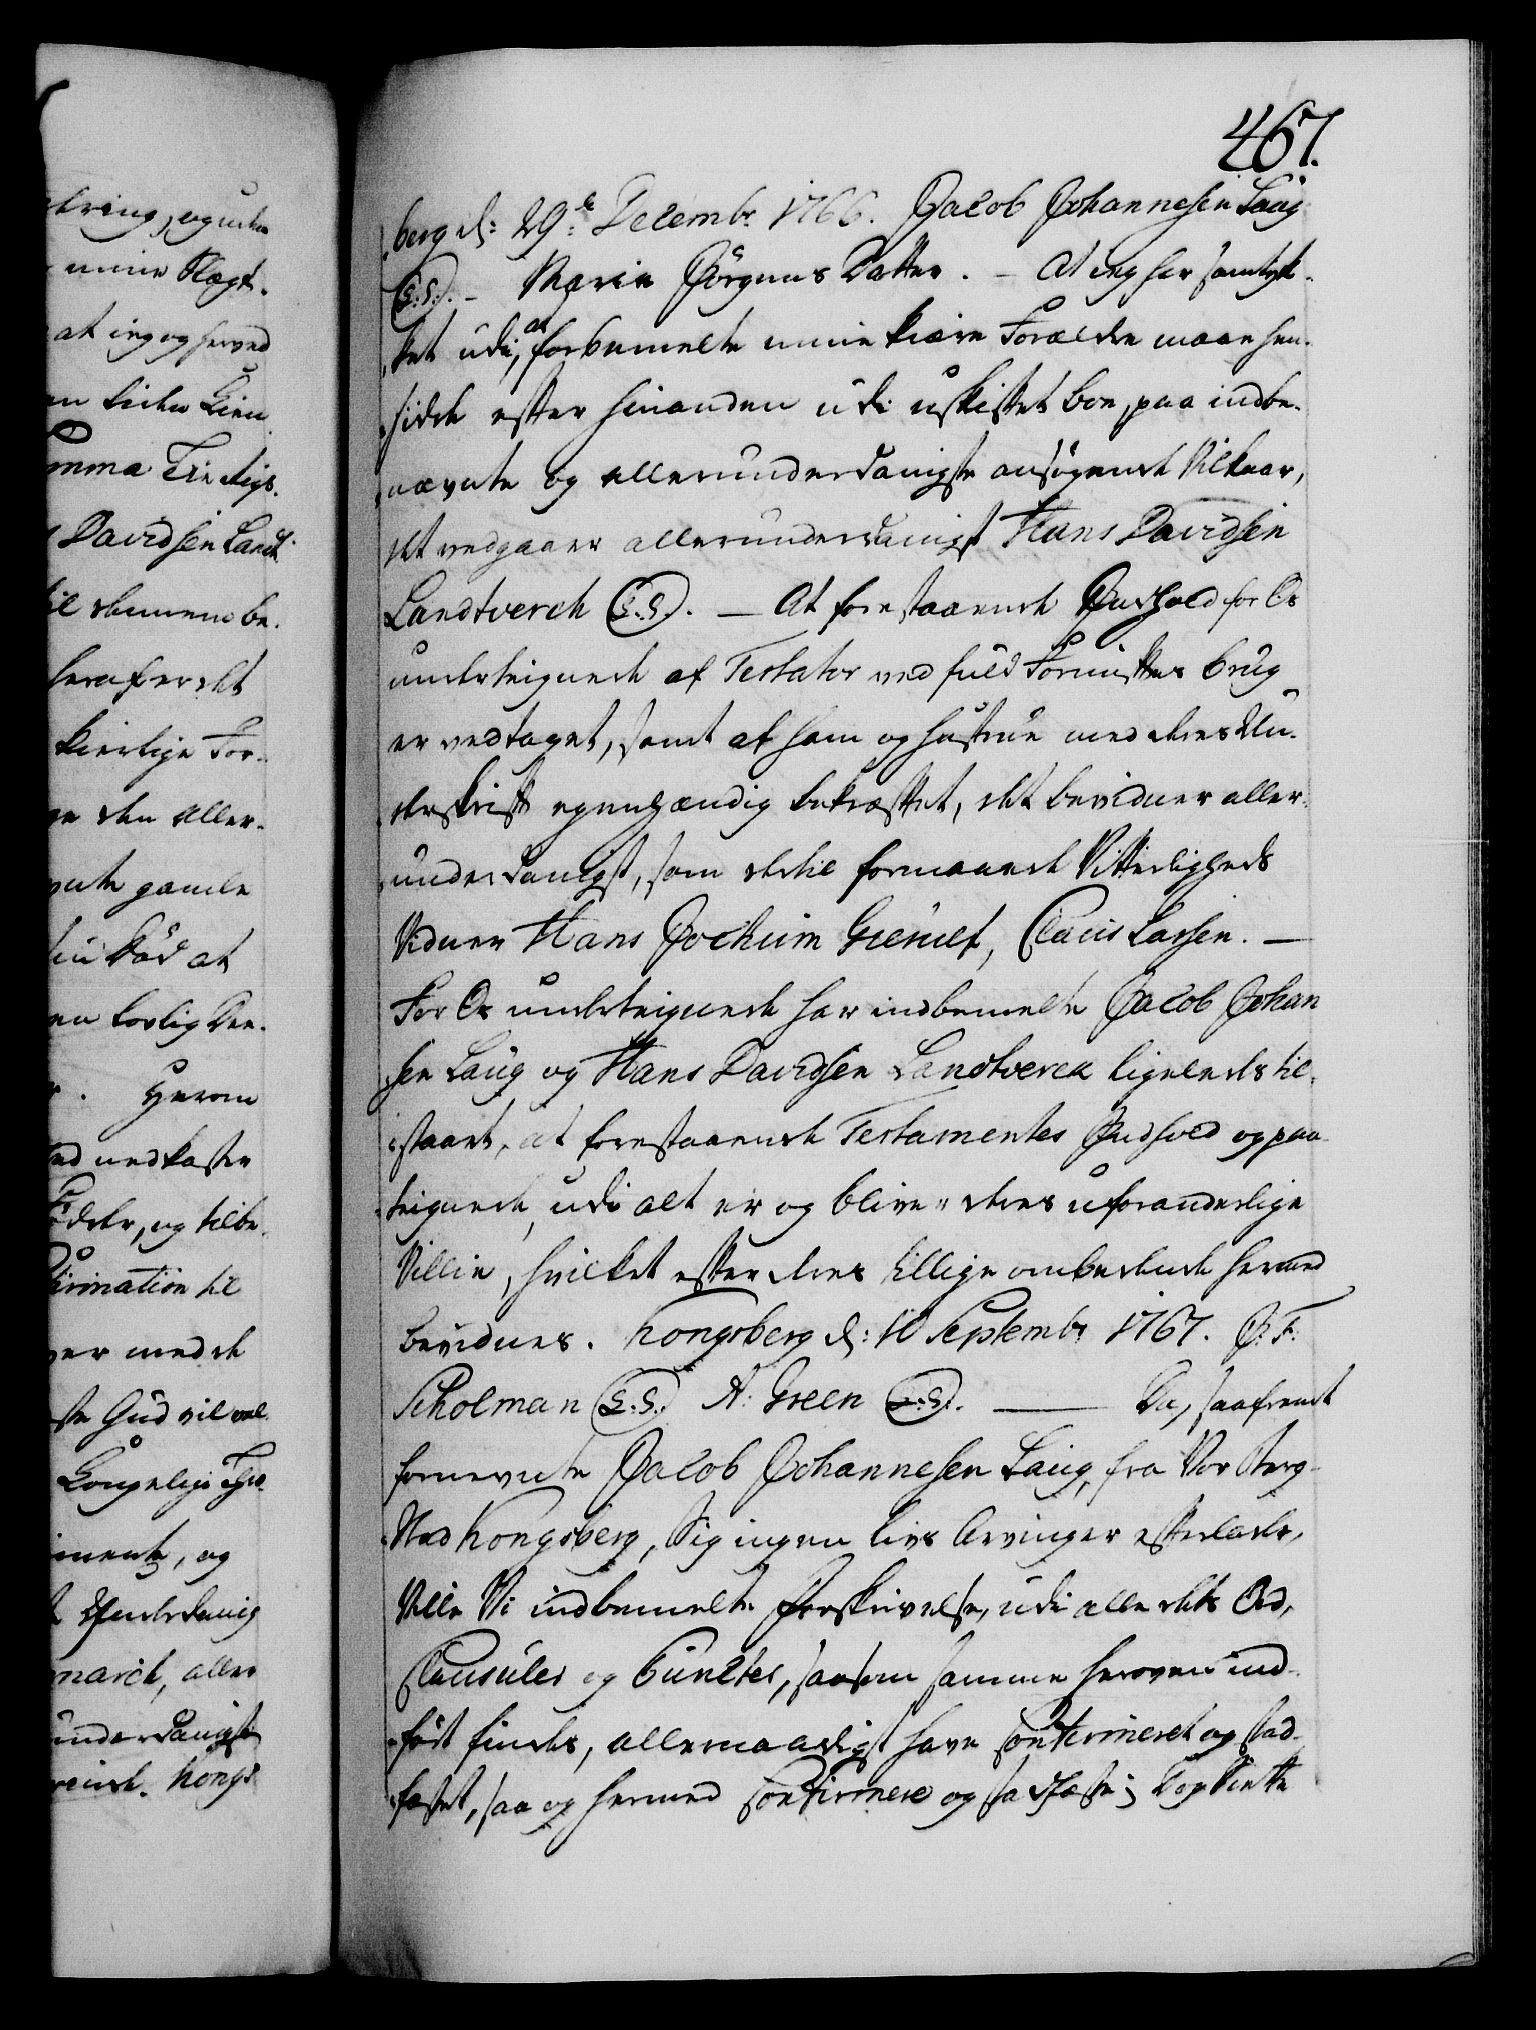 467.
berg d: 29de Decembr. 1766. Jacob Johannesen Laug
(L.S.). - Maria Jörgens Datter. - At jeg har samtyk-
ket udi, at forbemelte mine kiære Forældre maae hen-
sidde efter hinanden udi uskiftet boe, paa indbe-
nævnte og allerunderdanigste ansøgende Vilkaar,
det vedgaaer allerunderdanigst Hans Davidsen
Landtverch (L.S.). - At forestaaende Indhold for Os
undertegnede af Testator ved fuld Fornuftes brug
er vedtaget, samt af ham og hustrue med deres Un-
derskrift egenhændig bekræftet, det bevidner aller-
underdanigst, som dertil formaaede Vitterligheds
Vidner Hans Jochum Grenet, Claus Larsen. -
For Os undertegnede har indbemelte Jacob Johan
sen Laug og Hans Davidsen Landtverck ligeleds til-
staaet, at forestaaende Testamentes Indhold og paa-
tegnede, udi alt er og bliver deres uforanderlige
Villie, hvilket efter deres tillige ombedende herved
bevidnes. Kongsberg d: 10 Septembr 1767. J. F.
Scholman (L.S.) A: Green (L.S.). - Da, saafremt
fornevnte Jacob Johannesen Laug, fra Vor Berg-
Stad Kongsberg, Sig ingen livs Arvinger efterlader,
Ville Vi indbemelte Forskrivelse, udi alle dets Ord,
Clausuler og Puncter, saasom samme heroven ind-
ført findes, allernaadigst have Confirmeret og stad-
fæstet, saa og hermed Confirmere og stadfæste; Dog skulle